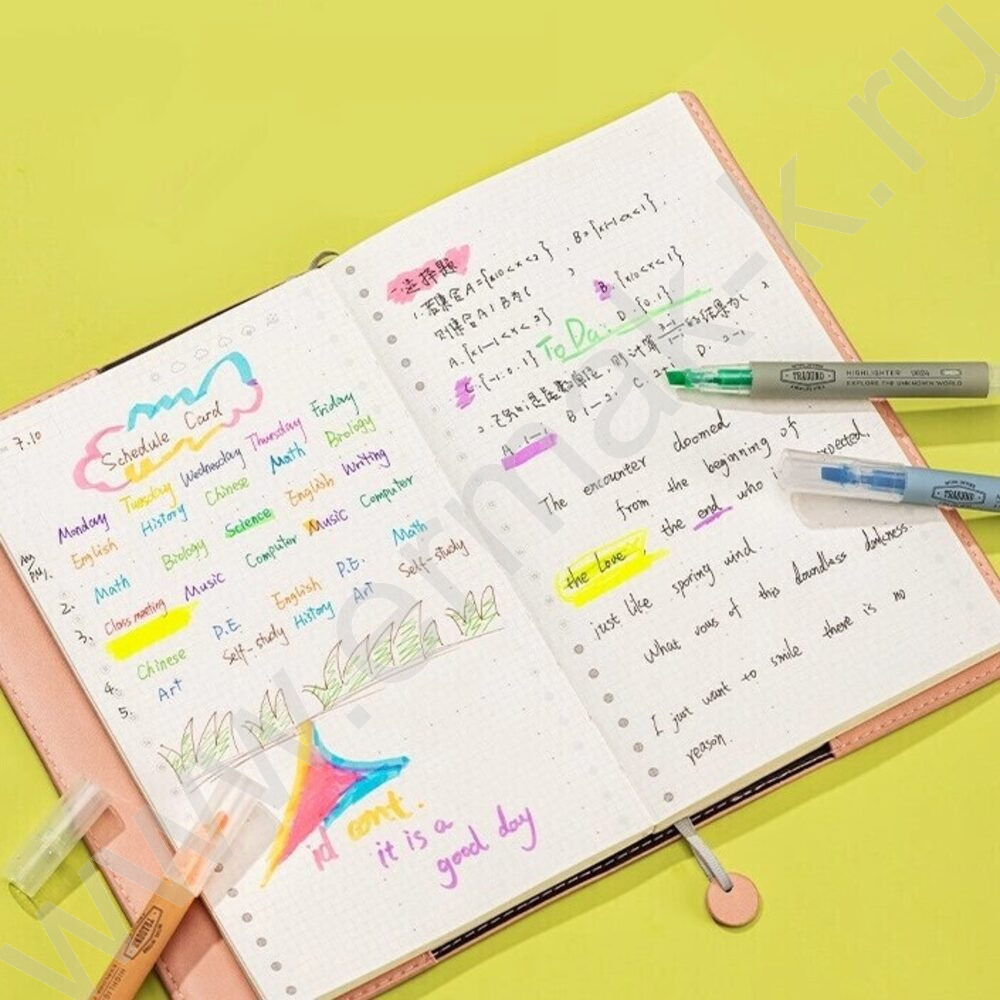 7.10
Schedule Card
Monday Tuesday Wednesday Thursday Friday
English History Chinese Math Biology
2. Math Biology Science English Writing
3. Class meeting Music Computer Music Computer
4. Chinese P.E. English P.E. Math
5. Art Self-study History Art Self-study
it is a
good day
一.选择题
1.若集合A={x|0<x<2}, B={x|-1<x<1},
则集合A
A.{x|-1<x<2} B.{x|0<x<1}
C.{-1.0.1} D.{0.1}
To Da
A. B C. D.
The encounter doomed
from the beginning of
the Love, the end who
just like spring wind.
What vows of this boundless darkness.
I just want to smile there is no
reason.
HIGHLIGHTER U024
TRAGUND
EXPLORE THE UNKNOWN WORLD
TRAGUND
TRAGUND
www.ermak-k.ru